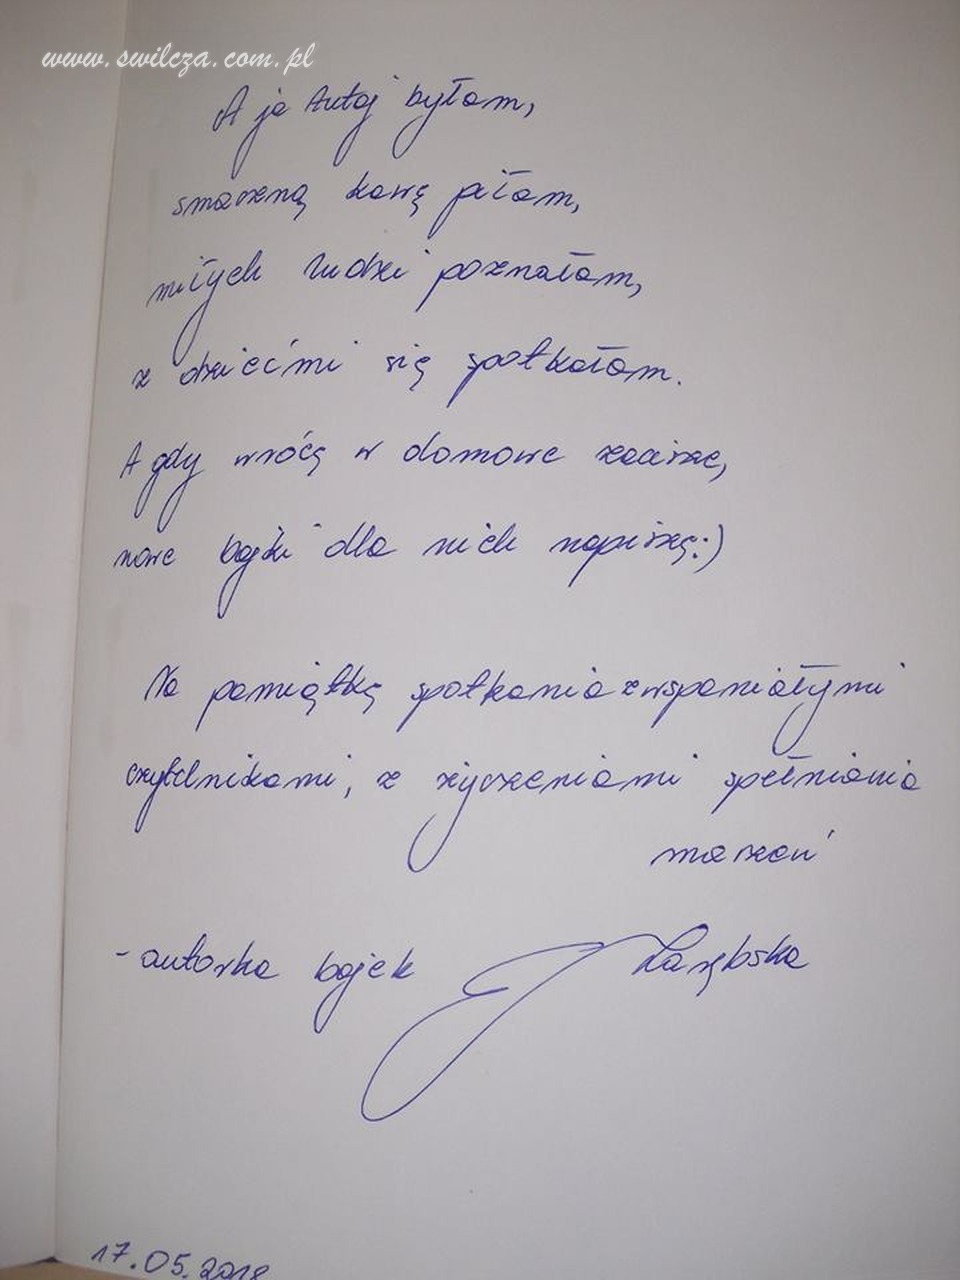 www.swilcza.com.pl
A ja tutaj byłam,
smaczną kawę piłam,
miłych ludzi poznałam,
z dziećmi się spotkałam.
A gdy wrócę w domowe zacisze,
nowe bajki dla nich napiszę:)
Na pamiątkę spotkania z wspaniałymi
czytelnikami, z życzeniami spełniania
marzeń
- autorka bajek J Zarębska
17.05.2018